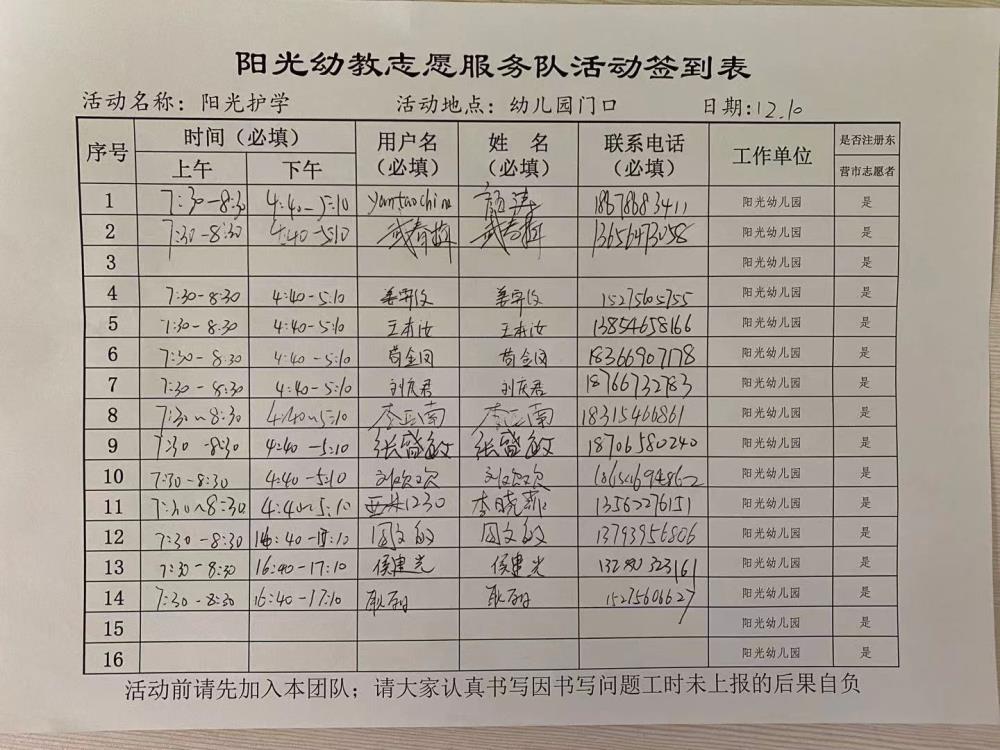 阳光幼教志愿服务队活动签到表
活动名称：阳光护学 活动地点：幼儿园门口 日期：12.10
序号 时间（必填） 上午 下午 用户名（必填） 姓名（必填） 联系电话（必填） 工作单位 是否注册东营市志愿者
1 7:30-8:30 4:40-5:10 yantaochina 颜涛 阳光幼儿园 是
2 7:30-8:30 4:40-5:10 13656473058 阳光幼儿园 是
3 阳光幼儿园 是
4 7:30-8:30 4:40-5:10 15275605755 阳光幼儿园 是
5 7:30-8:30 4:40-5:10 王本汝 王本汝 13854658166 阳光幼儿园 是
6 7:30-8:30 4:40-5:10 18366907178 阳光幼儿园 是
7 7:30-8:30 4:40-5:10 刘庆君 刘庆君 18766732783 阳光幼儿园 是
8 7:30~8:30 4:40~5:10 李正南 李正南 18315466861 阳光幼儿园 是
9 7:30-8:30 4:40-5:10 张盛敏 张盛敏 18706580240 阳光幼儿园 是
10 7:30-8:30 4:40-5:10 阳光幼儿园 是
11 7:30~8:30 4:40~5:10 李晓燕 13562276151 阳光幼儿园 是
12 7:30-8:30 16:40-17:10 13793956806 阳光幼儿园 是
13 7:30-8:30 16:40-17:10 侯建光 侯建光 阳光幼儿园 是
14 7:30-8:30 16:40-17:10 15275606627 阳光幼儿园 是
15 阳光幼儿园 是
16 阳光幼儿园 是
活动前请先加入本团队；请大家认真书写因书写问题工时未上报的后果自负